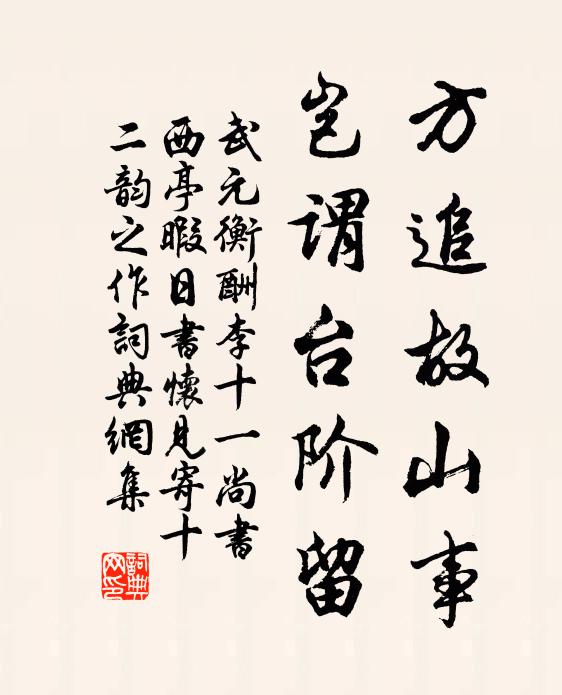 方追故山事
岂谓台阶留
武元衡酬李十一尚书
西亭暇日書懷見寄十
二韵之作詞典網集
詞典
网印